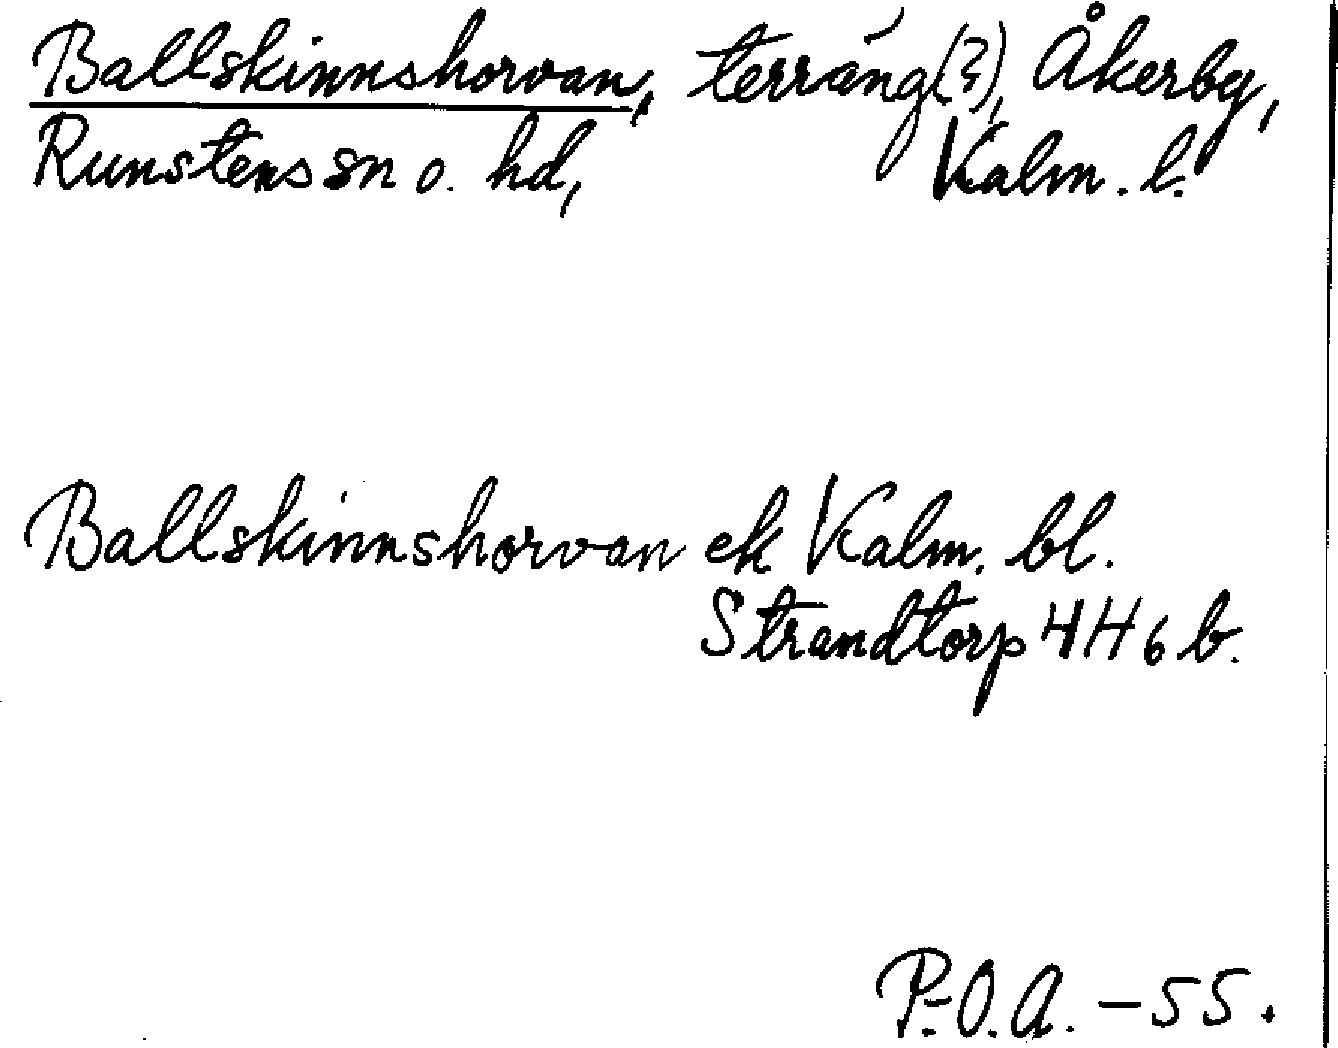 Ballskinnshorvan, terräng(?), Åkerby,
Runstens sn o. hd, Kalm. l.
Ballskinnshorvan ek Kalm. bl.
Strandtorp 4H6b.
P.-O.A. -55.